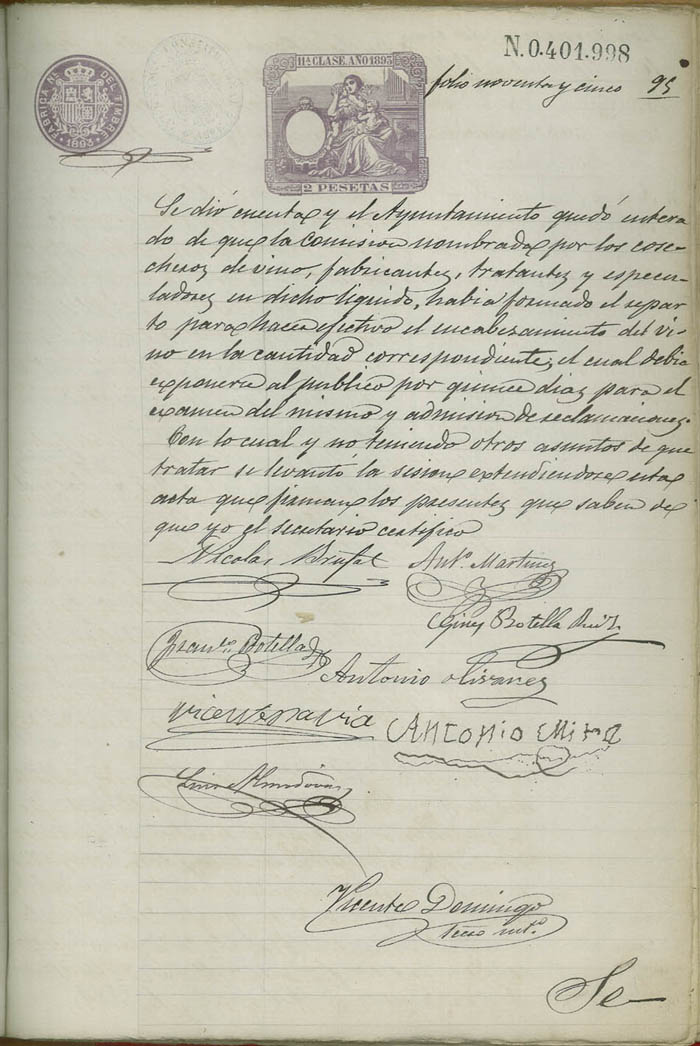 N.0.401.998
11ª CLASE. AÑO 1893
FABRICA NL. DEL TIMBRE
1893
2 PESETAS
folio noventa y cinco 95
Se dió cuenta y el Ayuntamiento quedó entera
do de que la comision nombrada por los cose-
cheros de vino, fabricantes, tratantes y especu-
ladores en dicho liquido, habia formado el repar
to para hacer efectivo el encabezamiento del vi-
no en la cantidad correspondiente, el cual debia
exponerse al publico por quince dias para el
examen del mismo y admision de reclamaciones.
Con lo cual y no teniendo otros asuntos de que
tratar se levantó la sesion extendiendose esta
acta que firman los presentes que saben de
que yo el secretario certifico
Nicolas Brufal Antº. Martinez
Gines Botella Ruiz
Franco. Botella
Antonio Olivares
Vicente Navia
Antonio Mira
Luis Almodovar
Vicente Domingo
Secro intº.
Se